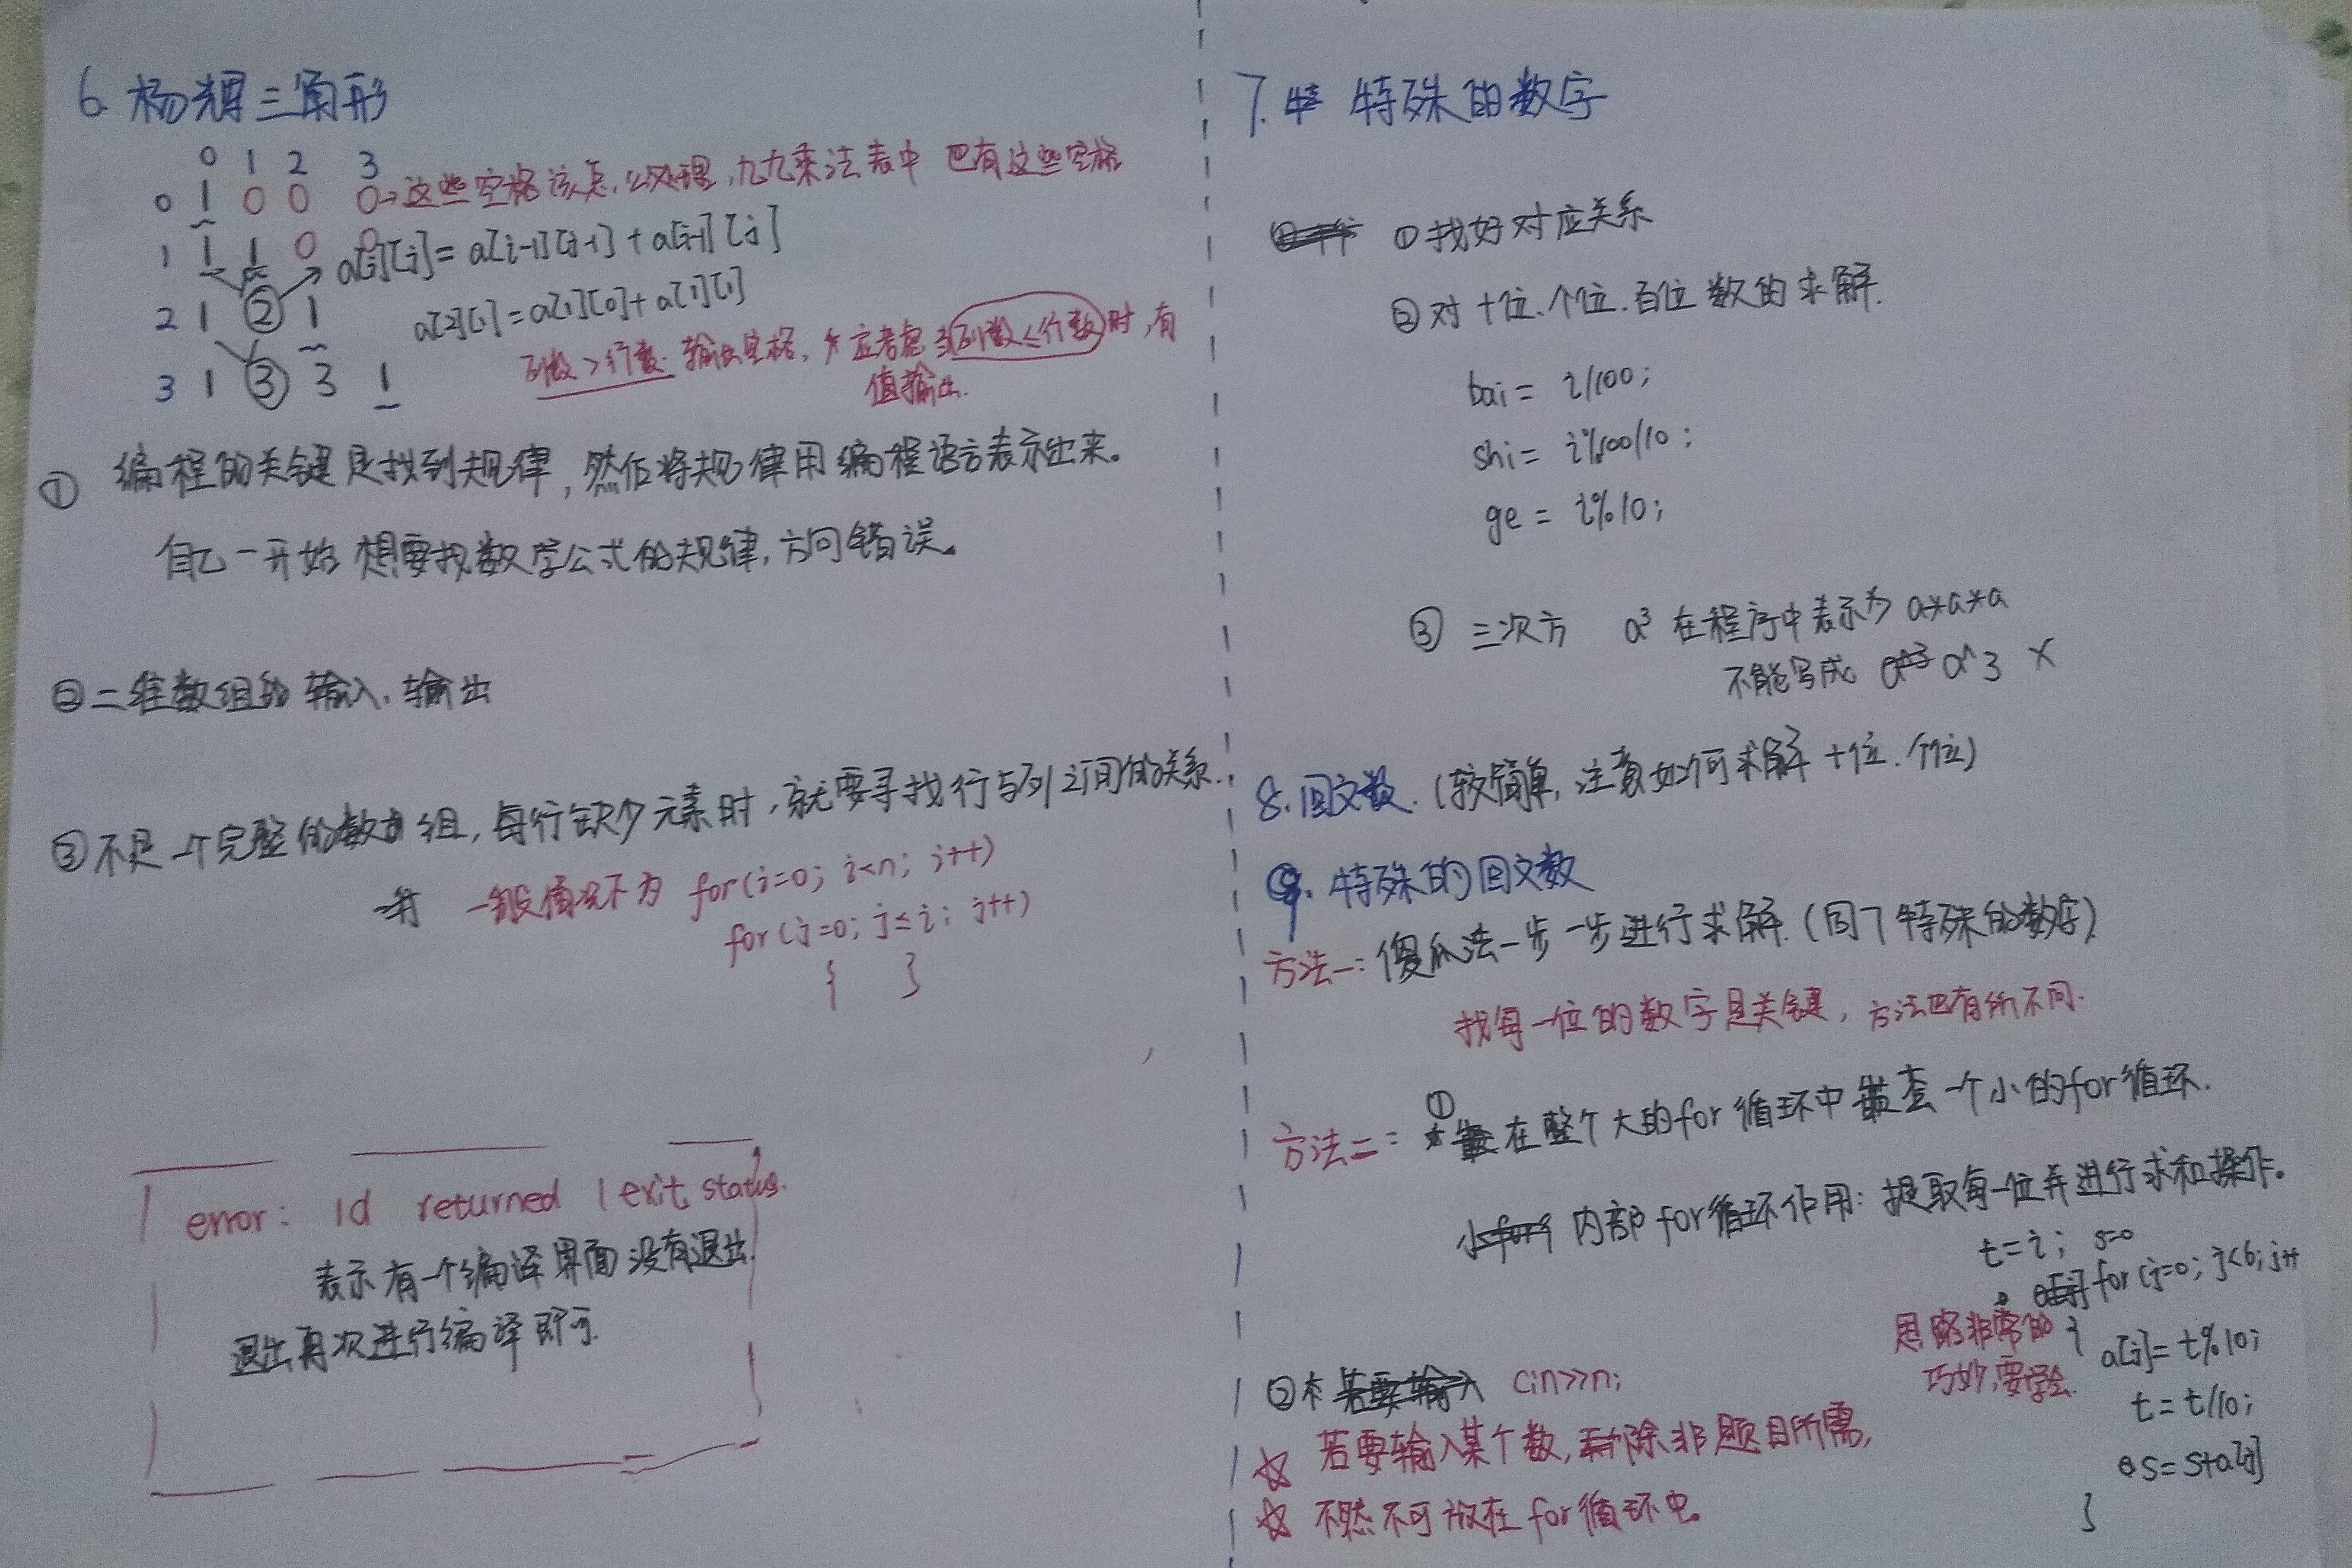 6. 杨辉三角形
0 1 2 3
0 1 0 0 0→这些空格该怎么处理,九九乘法表中也有这些空格
1 1 1 0 0
a[i][j]=a[i-1][j-1]+a[i-1][j]
2 1 ② 1
a[2][1]=a[1][0]+a[1][1]
列数>行数.输出空格, 应考虑当列数≤行数时,有
值输出.
3 1 ③ 3 1
① 编程的关键是找到规律,然后将规律用编程语言表示出来。
自己一开始想要找数学公式的规律,方向错误。
②二维数组的输入.输出
③不是一个完整的数组,每行缺少元素时,就要寻找行与列之间的关系.
一般情况下为 for(i=0; i<n; i++)
for(j=0; j≤i; j++)
{ }
error: ld returned 1 exit status.
表示有一个编译界面没有退出.
退出再次进行编译即可.
7. 特殊的数字
①找好对应关系
②对十位.个位.百位数的求解.
bai= i/100;
shi= i%100/10;
ge= i%10;
③ 三次方 a³在程序中表示为 a*a*a
不能写成 a^3 ×
8.回文数.(较简单,注意如何求解十位.个位)
9. 特殊的回文数
方法一:傻瓜法一步一步进行求解.(同7特殊的数字)
找每一位的数字是关键,方法也有所不同.
方法二: ①在整个大的for循环中嵌套一个小的for循环.
内部for循环作用:提取每一位并进行求和操作。
t=i; s=0
for(j=0; j<6; j++
{
思路非常的
巧妙,要学会.
a[j]=t%10;
t=t/10;
s=s+a[j]
}
② cin>>n;
☆ 若要输入某个数,除非题目所需,
☆ 不然不可放在for循环中。